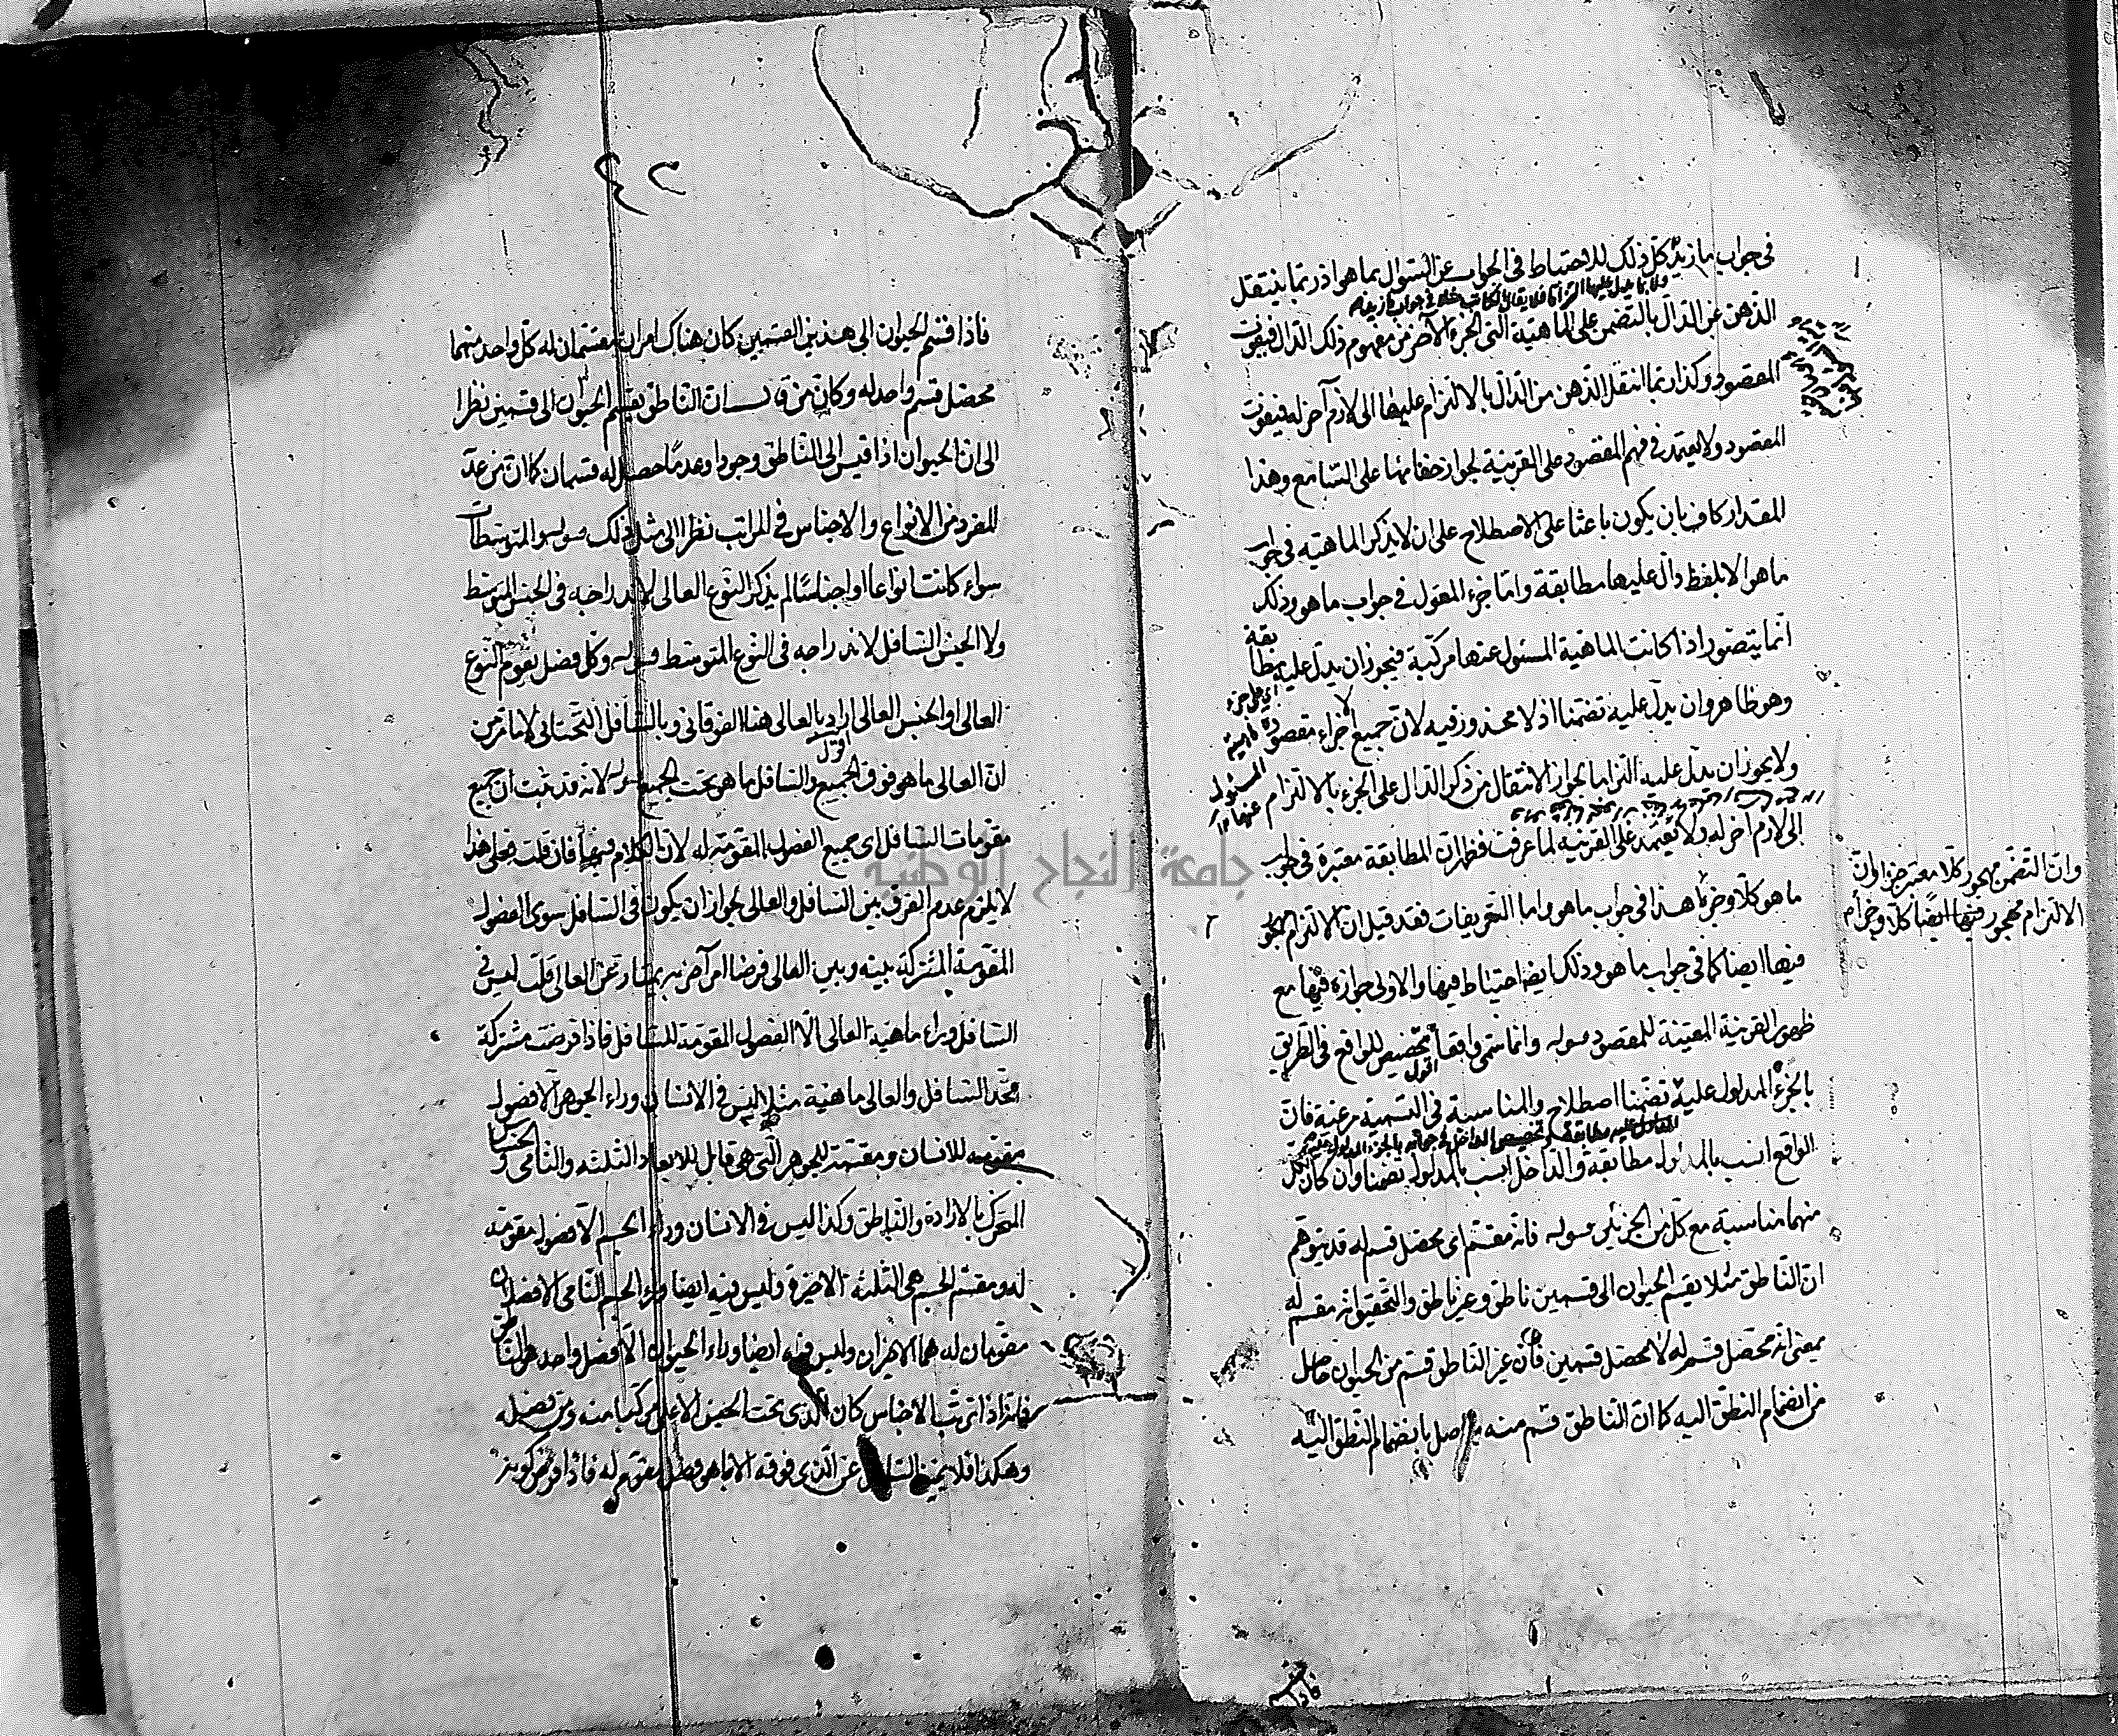 في جواب ما زيد كل ذلك للاحتياط في الجواب عن السئوال بما هو اذ ربما ينتقل
الذهن عن الدال بالتضمن على الماهية الى الجزء الآخر من مفهوم ذلك الدال فيفوت
المقصود وكذا ربما انتقل الذهن من الدال بالالتزام عليها الى لازم آخر له فيفوت
المقصود ولا يعتمد في فهم المقصود على القرينة لجواز خفائها على السامع وهذا
المقدار كاف بان يكون باعثا على الاصطلاح على ان لا يذكر الماهية في جواب
ما هو الا بلفظ دال عليها مطابقة واما جزء المقول في جواب ما هو وذلك
انما يتصور اذا كانت الماهية المسئول عنها مركبة فيجوز ان يدل عليه مطابقة
وهو ظاهر وان يدل عليه تضمنا اذ لا محذور فيه لان جميع الاجزاء مقصودة
ولا يجوز ان يدل عليه التزاما لجواز الانتقال من ذكر الدال على الجزء بالالتزام
الى لازم آخر له ولا يعتمد على القرينة لما عرفت فظهر ان المطابقة معتبرة في جواب
ما هو كلا وجزءا هذا في جواب ما هو واما التعريفات فقد قيل ان الالتزام مهجور
وان التضمن مهجور كلا معتبر جزءا وان
الالتزام مهجور فيها ايضا كلا وجزءا م
فيها ايضا كما في جواب ما هو وذلك ايضا احتياط فيها والاولى جوازه فيها مع
ظهور القرينة المعينة للمقصود قوله وانما سمى واقعا تخصيص للواقع في الطريق
بالجزء المدلول عليه تضمنا اصطلاح والمناسبة في التسمية مرعية فان
الواقع انسب بالمدلول مطابقة والداخل انسب بالمدلول تضمنا وان كان لكل
منهما مناسبة مع كل من الجزئين قوله فانه مقسم اى محصل قسم له قد يتوهم
ان الناطق مثلا يقسم الحيوان الى قسمين ناطق وغير ناطق والتحقيق انه مقسم له
بمعنى انه محصل قسم له لا محصل قسمين فان غير الناطق قسم من الحيوان حاصل
من انضمام النطق اليه كما ان الناطق قسم منه حاصل بانضمام النطق اليه
٤٢
فاذا قسم الحيوان الى هذين القسمين كان هناك امران مقسمان له كل واحد منهما
محصل قسم واحد له وكان من قال ان الناطق يقسم الحيوان الى قسمين نظرا
الى ان الحيوان اذا قيس الى الناطق وجودا وعدما حصل له قسمان كما ان من عد
المفرد من الانواع والاجناس في المراتب نظر الى مثل ذلك قوله والمتوسطات
سواء كانت انواعا او اجناسا لم يذكر النوع العالى لاندراجه في الجنس المتوسط
ولا الجنس السافل لاندراجه في النوع المتوسط قوله وكل فصل يقوم النوع
العالى او الجنس العالى اراد بالعالى هنا الفوقانى وبالسافل التحتانى لا ما مر من
ان العالى ما هو فوق الجميع والسافل ما هو تحت الجميع قوله لانه قد ثبت ان جميع
مقومات السافل اى جميع الفصول المقومة له لان الكلام فيها فان قلت فعلى هذا
لا يلزم عدم الفرق بين السافل والعالى لجواز ان يكون في السافل سوى الفصول
المقومة المشتركة بينه وبين العالى فرضا امر آخر به يمتاز عن العالى قلت ليس في
السافل وراء ماهية العالى الا الفصول المقومة للسافل فاذا فرضت مشتركة
اتحد السافل والعالى ماهية مثلا ليس في الانسان وراء الجوهر الا فصول
مقومة للانسان ومقسمة للجوهر التى هى قابل للابعاد الثلثة والنامى والحساس
المتحرك بالارادة والناطق وكذا ليس في الانسان وراء الجسم الا فصول مقومة
له ومقسم الجسم هى الثلثة الاخيرة وليس فيه ايضا وراء الجسم النامى الا فصلان
مقومان له هما الاخيران وليس فيه ايضا وراء الحيوان الا فصل واحد هو الناطق
فانه اذا ترتب الاجناس كان الذى تحت الجنس الاعلى مركبا منه ومن فصل له
وهكذا فلا يتميز السافل عن الذى فوقه الا بما هو فصل مقوم له فاذا فرض كونه
جامعة النجاح الوطنية